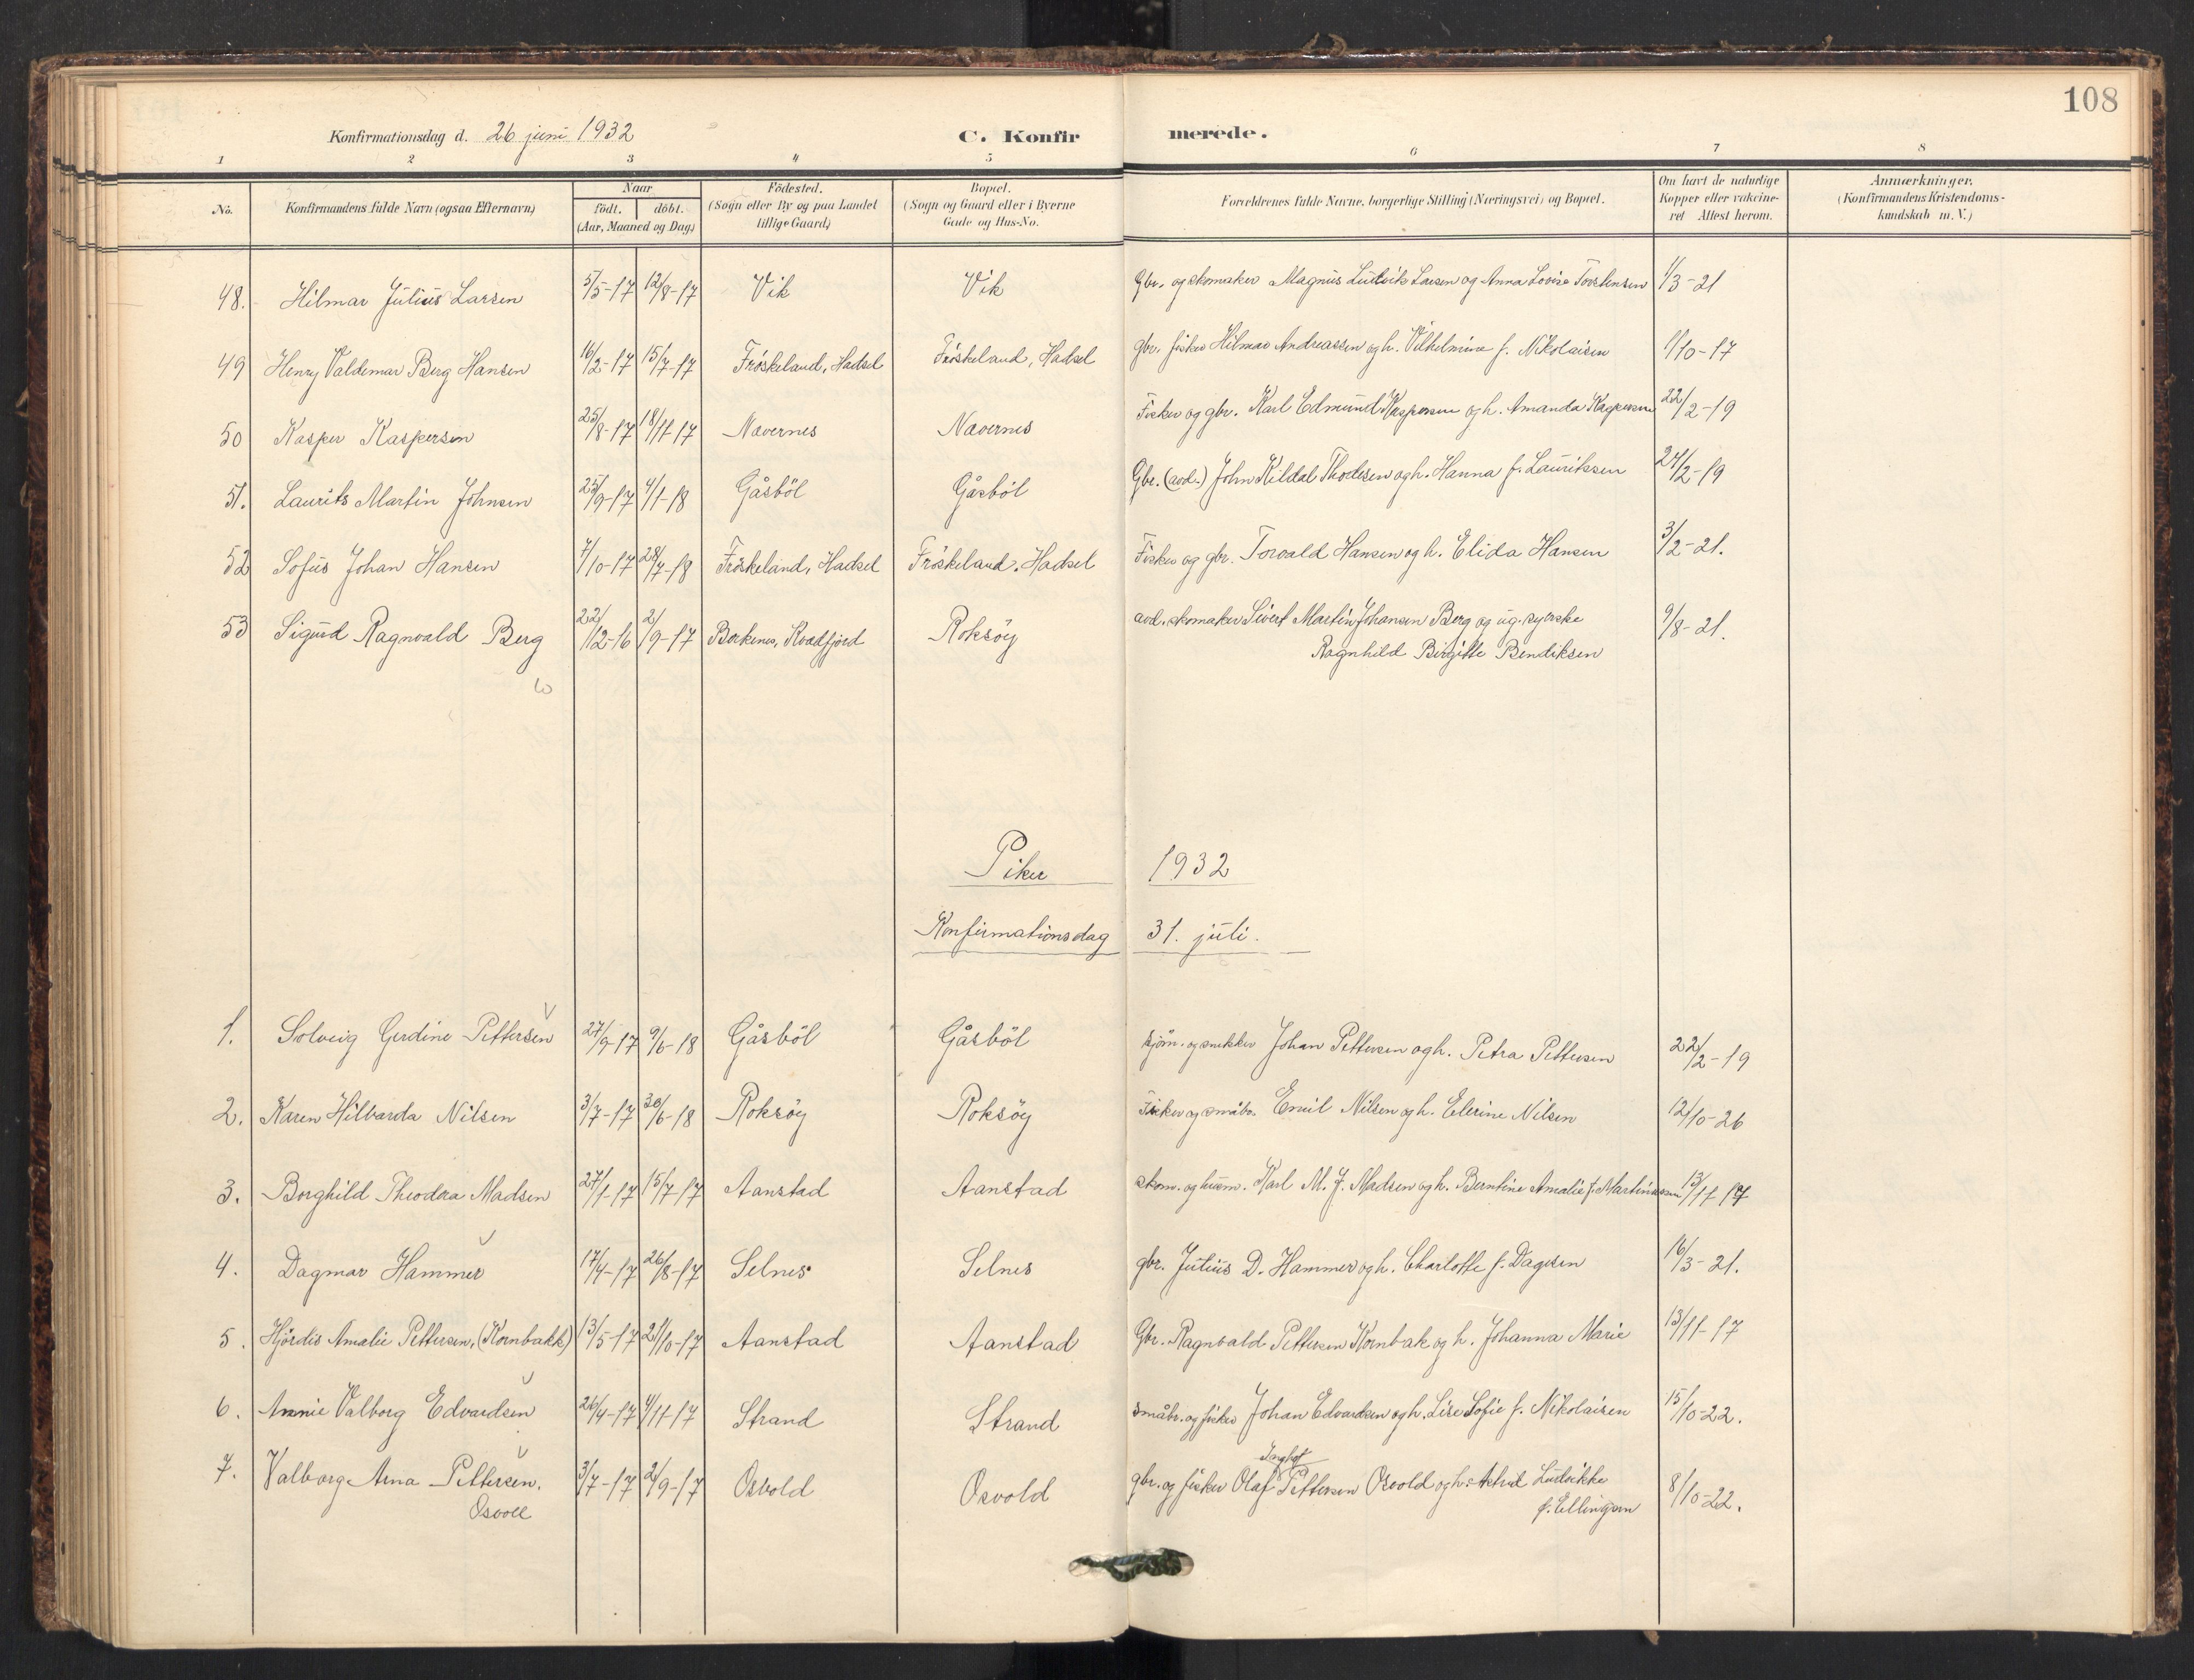 108
Konfirmationsdag d. 26 juni 1932
C. Konfirmerede.
1 2 3 4 5 6 7 8
No.
Konfirmandens fulde Navn (ogsaa Efternavn)
Naar
født. døbt.
(Aar, Maaned og Dag)
Fødested.
(Sogn eller By og paa Landet
tillige Gaard)
Bopæl.
(Sogn og Gaard eller i Byerne
Gade og Hus-No.
Forældrenes fulde Navne, borgerlige Stilling (Næringsvei) og Bopæl.
Om havt de naturlige
Kopper eller vakcine-
ret Attest herom.
Anmærkninger.
(Konfirmandens Kristendoms-
kundskab m. V.)
48. Hilmar Julius Larsen 5/5-17 12/8-17 Vik Vik Gbr. og skomaker Magnus Ludvik Larsen og Anna Lovise Torstensen 1/3-21
49 Henry Valdemar Berg Hansen 16/2-17 15/7-17 Fröskeland, Hadsel Fröskeland, Hadsel gbr. fisker Hilmar Andreassen og h. Vilhelmine f. Nikolaisen 1/10-17
50 Kasper Kaspersen 25/8-17 18/11-17 Navernes Navernes Fisker og gbr. Karl Edmund Kaspersen og h. Amanda Kaspersen 22/2-19
51. Laurits Martin Johnsen 25/9-17 4/1-18 Gåsböl Gåsböl Gbr. (avd.) John Kildal Thodesen og h. Hanna f. Lauritssen 24/2-19
52 Sofus Johan Hansen 7/10-17 28/7-18 Fröskeland, Hadsel Fröskeland, Hadsel Fisker og gbr. Torvald Hansen og h. Elida Hansen 3/2-21.
53 Sigurd Ragnvald Berg 22/12-16 2/9-17 Borkenes, Kvædfjord Roksöy avd. skomaker Sivert Martin Johansen Berg og ug. syerske
Ragnhild Birgitte Bendiksen 9/8-21.
Piker 1932
Konfirmationsdag 31. juli.
1. Solveig Gerdine Pettersen 27/9-17 9/6-18 Gåsböl Gåsböl sjöm. og snekker Johan Pettersen og h. Petra Pettersen 22/2-19
2. Karen Hilbarda Nilsen 3/7-17 30/6-18 Roksöy Roksöy Fisker og småbr. Emil Nilsen og h. Elerine Nilsen 12/10-26
3. Borghild Theodora Madsen 27/1-17 15/7-17 Aanstad Aanstad skom. og husm. Karl M. J. Madsen og h. Berntine Amalie f. Martinussen 13/11-17
4. Dagmar Hammer 17/4-17 26/8-17 Selnes Selnes gbr. Julius D. Hammer og h. Charlotte f. Dagesen 16/3-21.
5. Hjördis Amalie Pettersen, (Kornbakk) 13/5-17 21/10-17 Aanstad Aanstad Gbr. Ragnvald Pettersen Kornbak og h. Johanna Marie 13/11-17
6. Annie Valborg Edvardsen 26/4-17 4/11-17 Strand Strand småbr. og fisker Johan Edvardsen og h. Lise Sofie f. Nikolaisen 15/10-22.
7. Valborg Arna Pettersen. 3/7-17 2/9-17 Osvold Osvold gbr. og fisker Olaf Pettersen Osvold og h. Astrid Ludvikke
Osvoll f. Ellingsen 8/10-22.